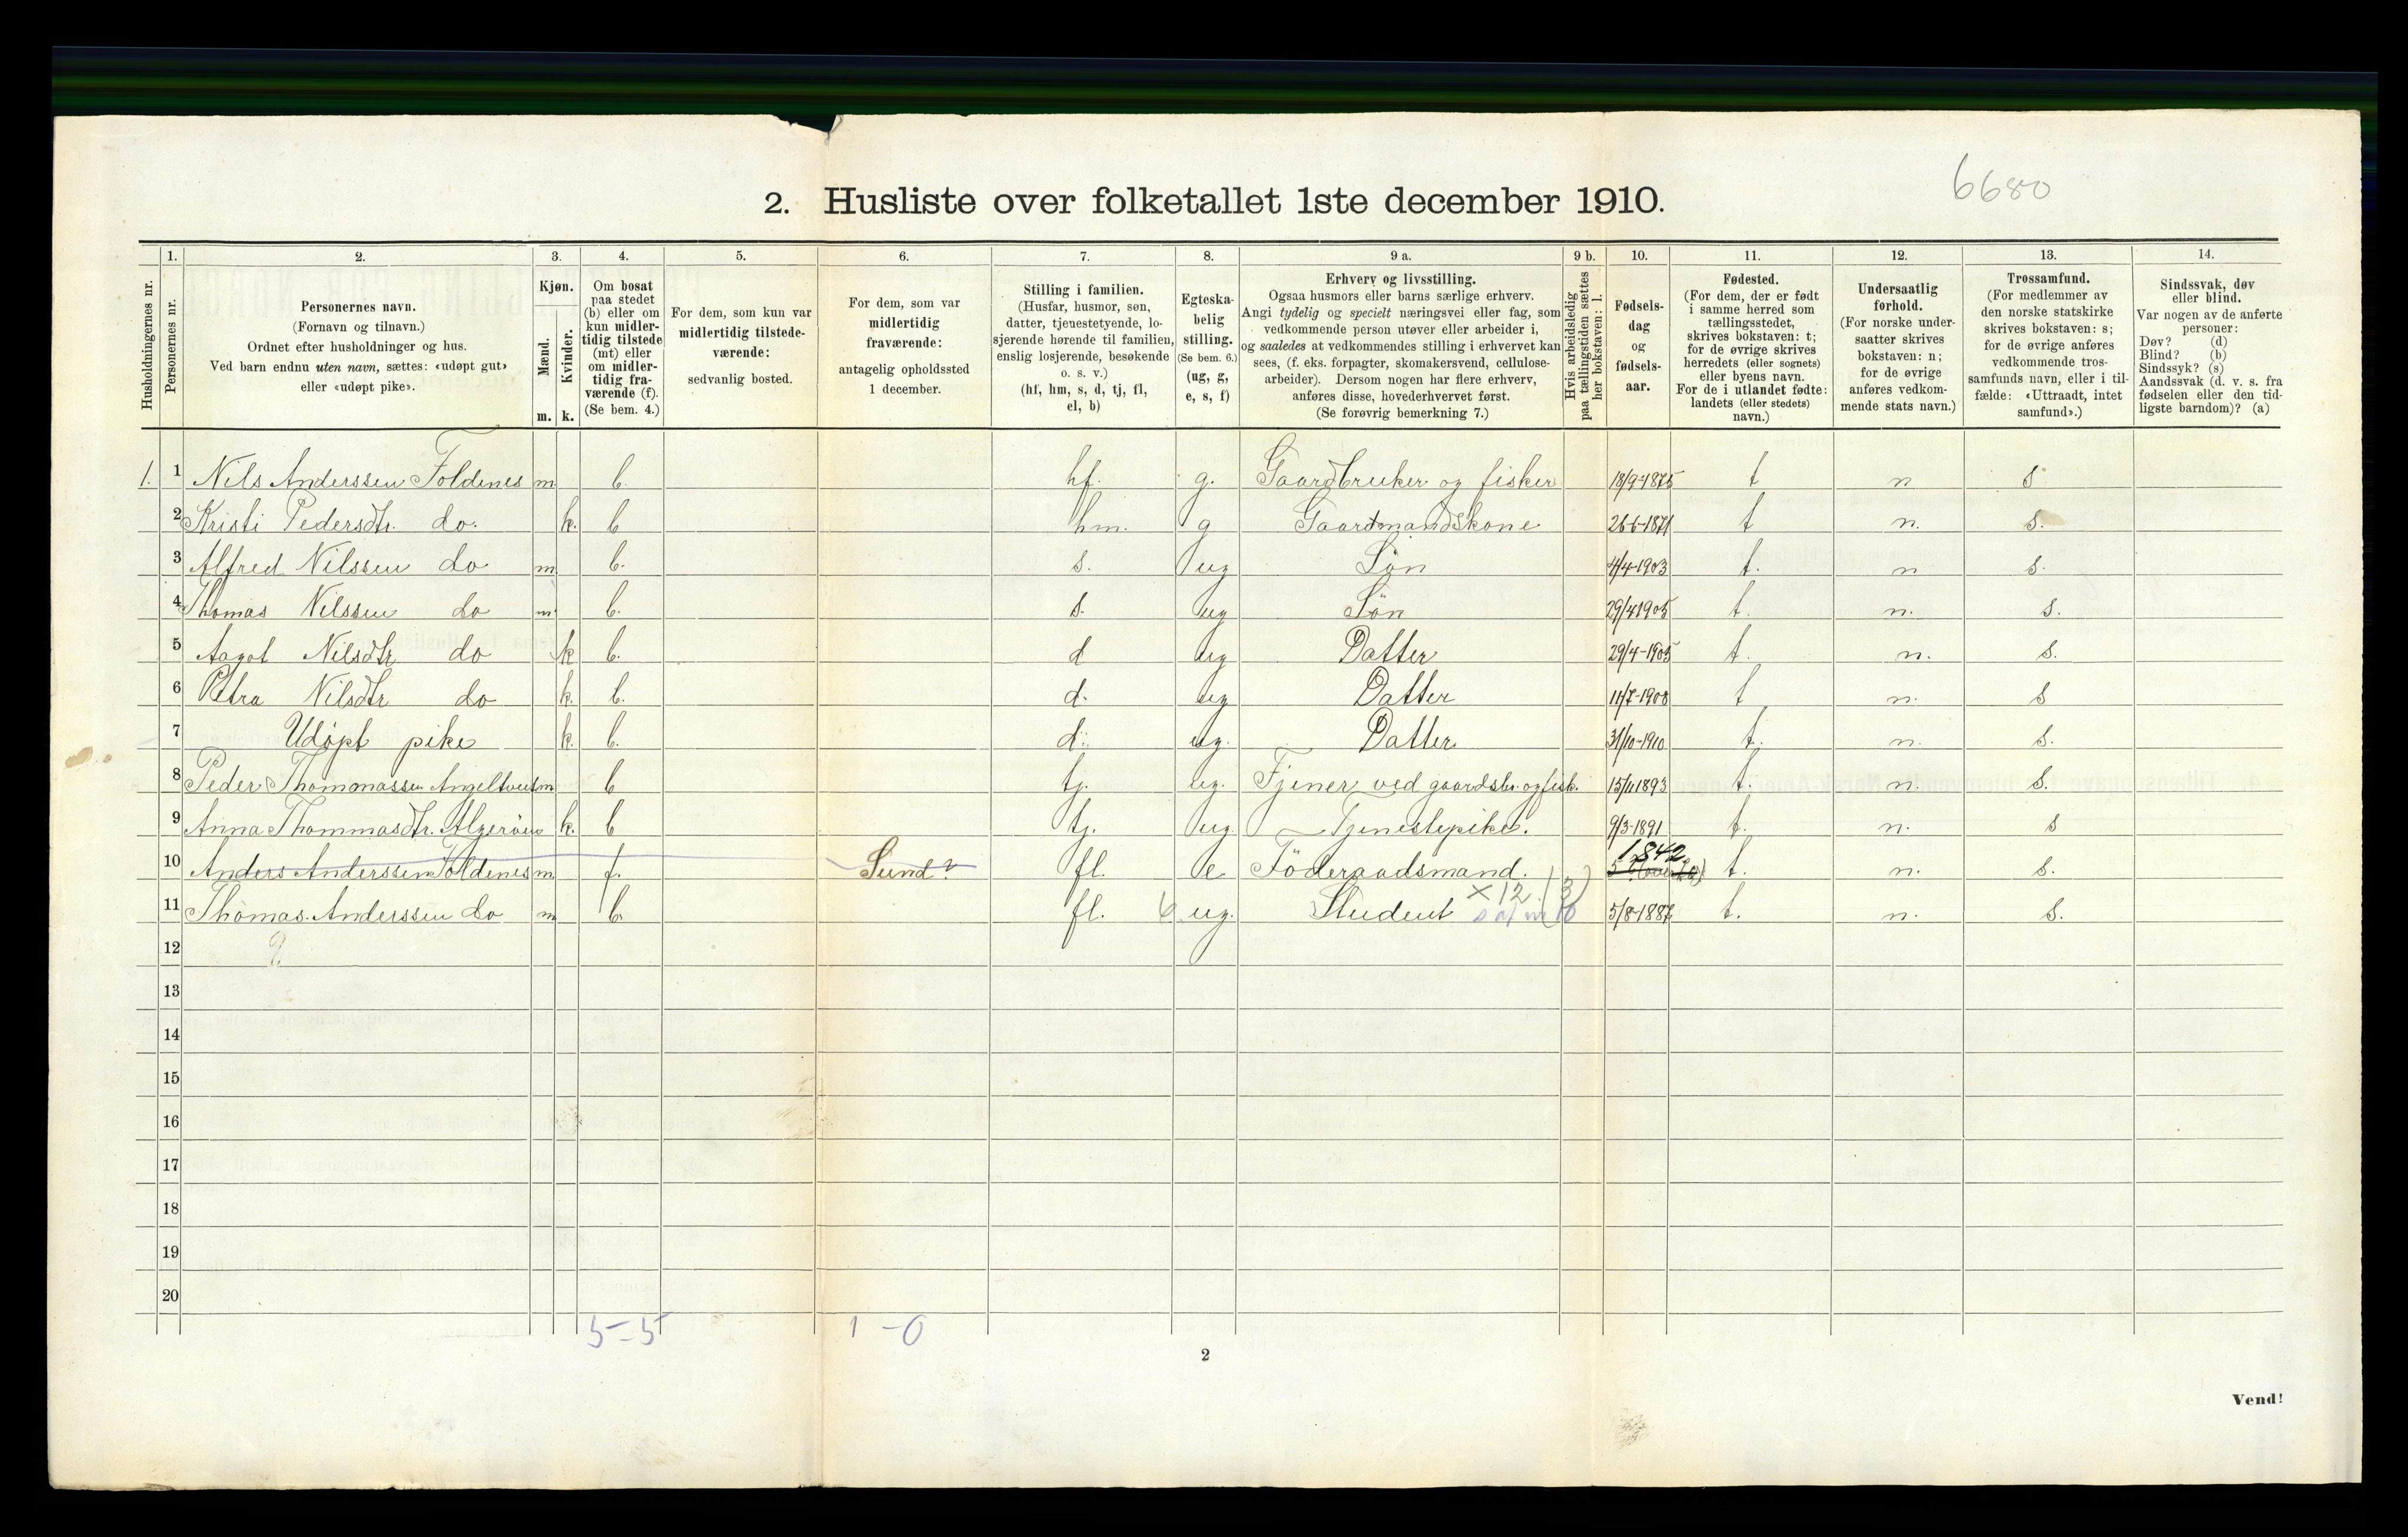 6680
2. Husliste over folketallet 1ste december 1910.
Husholdningernes nr.
1.
Personernes nr.
2.
Personernes navn.
(Fornavn og tilnavn.)
Ordnet efter husholdninger og hus.
Ved barn endnu uten navn, sættes: «udøpt gut»
eller «udøpt pike».
3.
Kjøn.
Mænd.
m.
Kvinder.
k.
4.
Om bosat
paa stedet
(b) eller om
kun midler-
tidig tilstede
(mt) eller
om midler-
tidig fra-
værende (f).
(Se bem. 4.)
5.
For dem, som kun var
midlertidig tilstede-
værende:
sedvanlig bosted.
6.
For dem, som var
midlertidig
fraværende:
antagelig opholdssted
1 december.
7.
Stilling i familien.
(Husfar, husmor, søn,
datter, tjenestetyende, lo-
sjerende hørende til familien,
enslig losjerende, besøkende
o. s. v.)
(hf, hm, s, d, tj, fl,
el, b)
8.
Egteska-
belig
stilling.
(Se bem. 6.)
(ug, g,
e, s, f)
9 a.
Erhverv og livsstilling.
Ogsaa husmors eller barns særlige erhverv.
Angi tydelig og specielt næringsvei eller fag, som
vedkommende person utøver eller arbeider i,
og saaledes at vedkommendes stilling i erhvervet kan
sees, (f. eks. forpagter, skomakersvend, cellulose-
arbeider). Dersom nogen har flere erhverv,
anføres disse, hovederhvervet først.
(Se forøvrig bemerkning 7.)
9 b.
Hvis arbeidsledig
paa tællingstiden sættes
her bokstaven: l.
10.
Fødsels-
dag
og
fødsels-
aar.
11.
Fødested.
(For dem, der er født
i samme herred som
tællingsstedet,
skrives bokstaven: t;
for de øvrige skrives
herredets (eller sognets)
eller byens navn.
For de i utlandet fødte:
landets (eller stedets)
navn.)
12.
Undersaatlig
forhold.
(For norske under-
saatter skrives
bokstaven: n;
for de øvrige
anføres vedkom-
mende stats navn.)
13.
Trossamfund.
(For medlemmer av
den norske statskirke
skrives bokstaven: s;
for de øvrige anføres
vedkommende tros-
samfunds navn, eller i til-
fælde: «Uttraadt, intet
samfund».)
14.
Sindssvak, døv
eller blind.
Var nogen av de anførte
personer:
Døv? (d)
Blind? (b)
Sindssyk? (s)
Aandssvak (d. v. s. fra
fødselen eller den tid-
ligste barndom)? (a)
1. 1 Nils Anderssen Foldenes m b. hf. g. Gaardbruker og fisker 18/9-1875 t n s
2 Kristi Pedersdtr. do. k. b hm. g Gaardmandskone 26-6-1871 t n. s.
3 Alfred Nilssen do m b. s. ug Søn 4/4-1903 t. n s.
4 Thomas Nilssen do m b. s. ug Søn 29/4 1905 t. n. s.
5 Aagot Nilsdtr do k b. d ug Datter 29/4-1905 t. n. s.
6 Petra Nilsdtr do k. b. d. ug Datter 11/7-1908 t n. s
7 Udøpt pike k. b. d. ug. Datter 31/10-1910 t. n. s.
8 Peder Thommassen Angeltveit m b tj. ug. Tjener ved gaardsbr. og fisk. 15/11 1893 t. n. s.
9 Anna Thommasdtr. Algerøen k. b tj. ug Tjenestepike. 9/3-1891 t. n. s
10 Anders Anderssen Foldenes m f. Sund? fl. e Föderaadsmand. 1842 t. n. s.
11 Thomas Anderssen do m b. fl. 6 ug. Student x 12 (3) 5/8-1887 t. n. s.
12
13
14
15
16
17
18
19
20
5-5 1-0
2
Vend!